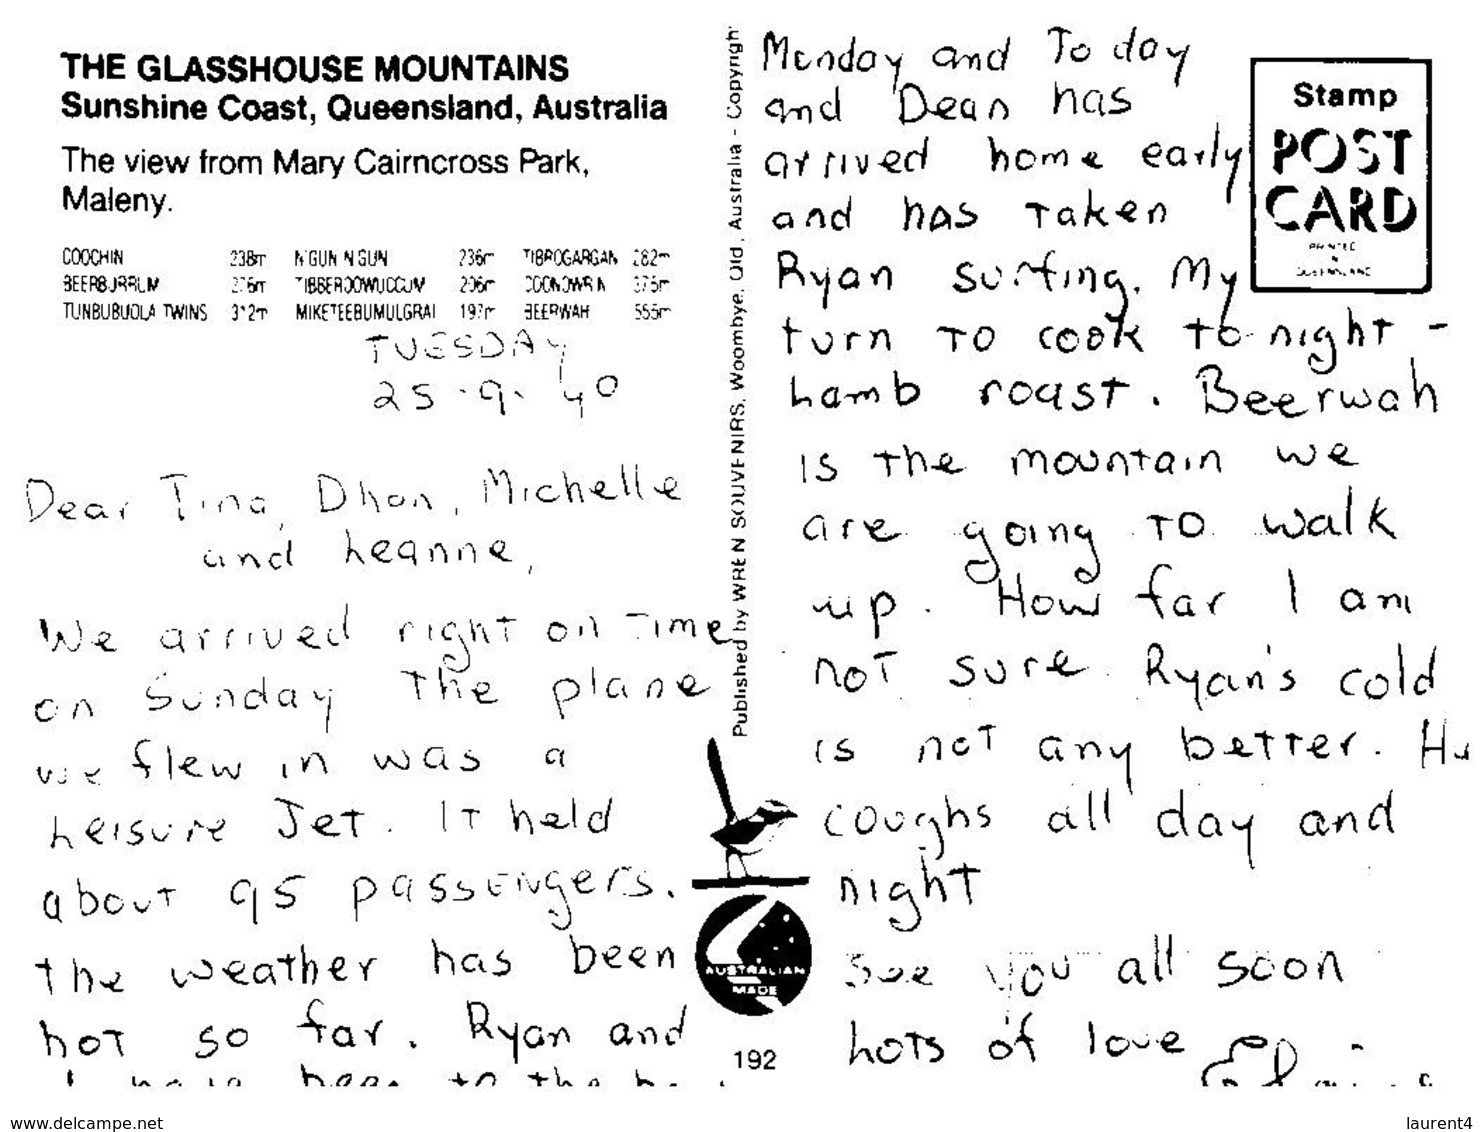 THE GLASSHOUSE MOUNTAINS
Sunshine Coast, Queensland, Australia
The view from Mary Cairncross Park,
Maleny.
COOCHIN 238m N'GUN N'GUN 236m TIBROGARGAN 282m
BEERBURRUM 276m TIBBEROOWUCCUM 206m COONOWRIN 375m
TUNBUBUDLA TWINS 312m MIKETEEBUMULGRAI 197m BEERWAH 555m
TUESDAY
25.9.40
Dear Tina, Dhon, Michelle
and Leanne,
We arrived right on time
on Sunday The plane
we flew in was a
Leisure Jet. It held
about 95 passengers.
the weather has been
hot so far. Ryan and
I have been to the
Published by WREN SOUVENIRS, Woombye, Qld, Australia - Copyright
AUSTRALIAN
MADE
192
Monday and Today
and Dean has
arrived home early
and has taken
Ryan surfing. My
turn to cook to-night -
Lamb roast. Beerwah
is the mountain we
are going to walk
up. How far I am
not sure. Ryan's cold
is not any better. He
coughs all day and
night
See you all soon
Lots of love
Elaine
Stamp
POST
CARD
PRINTED
IN
QUEENSLAND
www.delcampe.net
laurent4